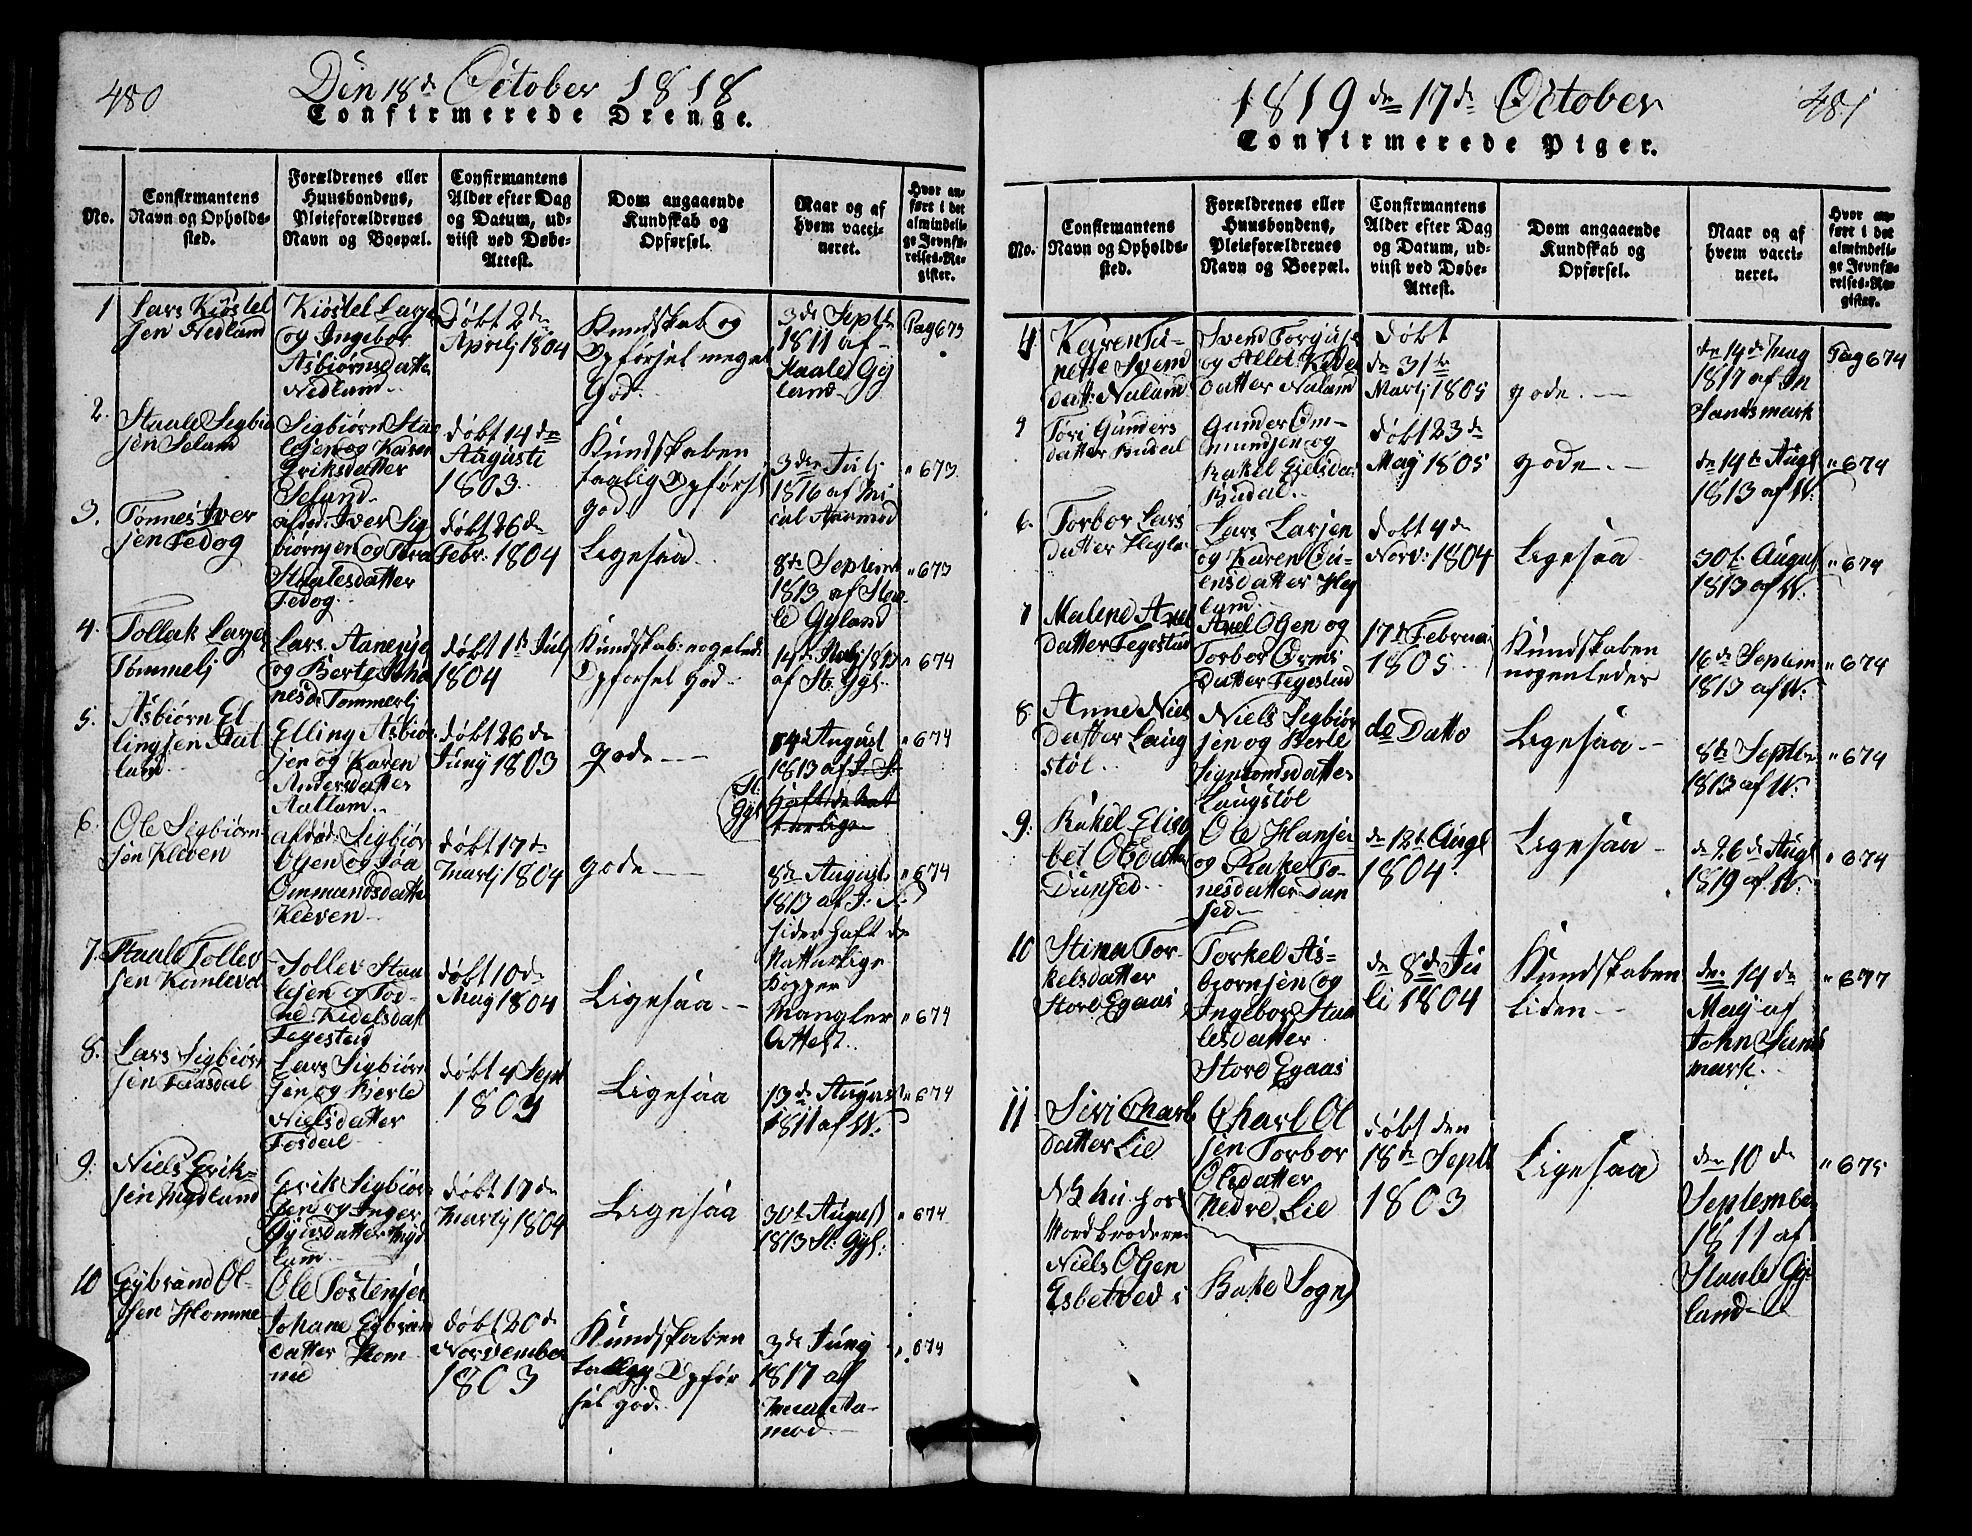 480
Den 18de October 1818
Confirmerede Drenge.
No.
Confirmantens
Navn og Opholds-
sted.
Forældrenes eller
Huusbondens,
Pleieforældrenes
Navn og Boepæl.
Confirmantens
Alder efter Dag
og Datum, ud-
viist ved Døbe-
Attest.
Dom angaaende
Kundskab og
Opførsel.
Naar og af
hvem vacci-
neret.
Hvor an-
ført i det
almindeli-
ge Jevnfø-
relses-Re-
gister.
1
Lars Kiøstel
sen Nedland
Kiøstel Larse
og Ingebor
Asbiørnsdatter
Nedland
Døbt 2de
Aprilj 1804
Kundskab og
Opførsel meget
God
3de Septb
1811 af
Staale Gy
land
Pag 673
2.
Staale Sigbiø
sen Seland
Sigbiørn Staa
lesen og Karen
Eriksdatter
Seland
døbt 14de
Augusti
1803
Kundskaben
taalig Opførsel
god
3de Julj
1816 af Mi
cal Aamod
" 673
3.
Tønnes Iver
sen Fedog
afdød. Iver Sig
biørnsen og Thora
Staalesdatter
Fedog
døbt 26de
Febr. 1804
Ligesaa
8de Septem
1813 af Staa
le Gyland
" 673
4.
Tollak Larse
Tommelj
Lars Aanense
og Berte Joha
nesd. Tommerlj
døbt 1ste Julj
1804
Kundskab nogeled.
Opførsel god
14de Maj 1813
af St. Gyl.
" 674
5.
Asbiørn El
lingsen Aat
land
Elling Asbiør
sen og Karen
Andersdatter
Aatlam
døbt 26de
Junj 1803
gode
14de August
1813 af J. S.
St.
Gyl
haft de nat
turlige
" 674
6.
Ole Sigbiørn
sen Kleven
afdød. Sigbiør
Olsen og Joa
Ommundsdatte
Kleven
døbt 17de
Martj 1804
gode
8de August
1813 af J. S.
siden haft de
Naturlige
Kopper
Mangler
Attest
" 674
7.
Staale Tollev
sen Komlevol
Tollev Staa
lesen og Tor
ne Kidelsdat
Fegestad
døbt 10de
Maj 1804
Ligesaa
" 674
8.
Lars Sigbiør
sen Faasdal
Lars Sigbiør
sen og Berte
Nielsdatter
Fosdal
døbt 4 Sept
1803
Ligesaa
13de August
1811 af W.
" 674
9.
Niels Erik-
sen Mydland
Erik Sigbiør
sen og Inger
Gydsdatter Myd
land
døbt 17de
Martj 1804
Ligesaa
30te August
1813 St. Gyl.
" 674
10
Eybrand Ol-
sen Homme
Ole Tostensen
Johane Eybran
datter Hom
me
døbt 20de
November
1803
Kundskaben
taalig Opfør
sel god
3de Junj
1817 af
Mical Aa-
mod
" 674
1819 den 17de October
481
Confirmerede Piger.
No.
Confirmantens
Navn og Opholds-
sted.
Forældrenes eller
Huusbondens,
Pleieforældrenes
Navn og Boepæl.
Confirmantens
Alder efter Dag
og Datum, ud-
viist ved Døbe-
Attest.
Dom angaaende
Kundskab og
Opførsel.
Naar og af
hvem vacci-
neret.
Hvor an-
ført i det
almindeli-
ge Jevnfø-
relses-Re-
gister.
4
Karen Tu-
nette Svend
datt. Nuland
Svend Torgus
og Allet Kidel
datter Nuland
døbt
den 31te
Martj 1805
gode
den 14de Junj
1817 af Jn
Sandsmark
Pag 674
Tøri Gunders
datter Budal
Gunder Om-
mundsen og
Rakel Ejelsda
Budal
døbt 23de
Maj 1805
gode
den 14te Augs
1813 af W.
" 674
6.
Torbor Lars
datter Hegla
Lars Larsen
og Karen Gu-
ensdatter Heg
land
døbt 4de
Nov. 1804
Ligesaa
30te August
1813 af W.
" 674
7
Malene Axel
datter Fegestad
Axel Olsen og
Torbor Orms
datter Fegestad
17de Februa
1805
Kundskaben
nogenledes
16de Septem
1813 af W.
" 674
8.
Anne Niels
datter Laug
støl
Niels Sigbiør
sen og Berte
Sigmonsdatter
Laugstøl
do Datto
Ligesaa
8de Septbr
1813 af W.
" 674
9.
Rakel Elisa
bet Olsdatte
Dunsed
Ole Hansen
og Rakel To-
nesdatter Dun
sed
den 12te Augs
1804
Ligesaa
den 26de Augs
1819 af W.
" 674
10
Stina Tor-
kelsdatter
Store Egaas
Torkel As-
biørnsen og
Ingebor Staa
lesdatter
Store Egaas
den 8de Ju
li 1804
Kundskaben
liden
den 14de
Maj af
John Sands
mark
" 677
11
Siri Charls
datter Lie
NB hu hos
Mordbroderen
Niels Olsen
Esbetved i
Charl Ol
sen Torbor
Olsdatter
Nedre Lie
Bake Sogn
døbt den
18de Septb
1803
Ligesaa
den 10de
September
1811 af
Staale Gy-
land
" 675